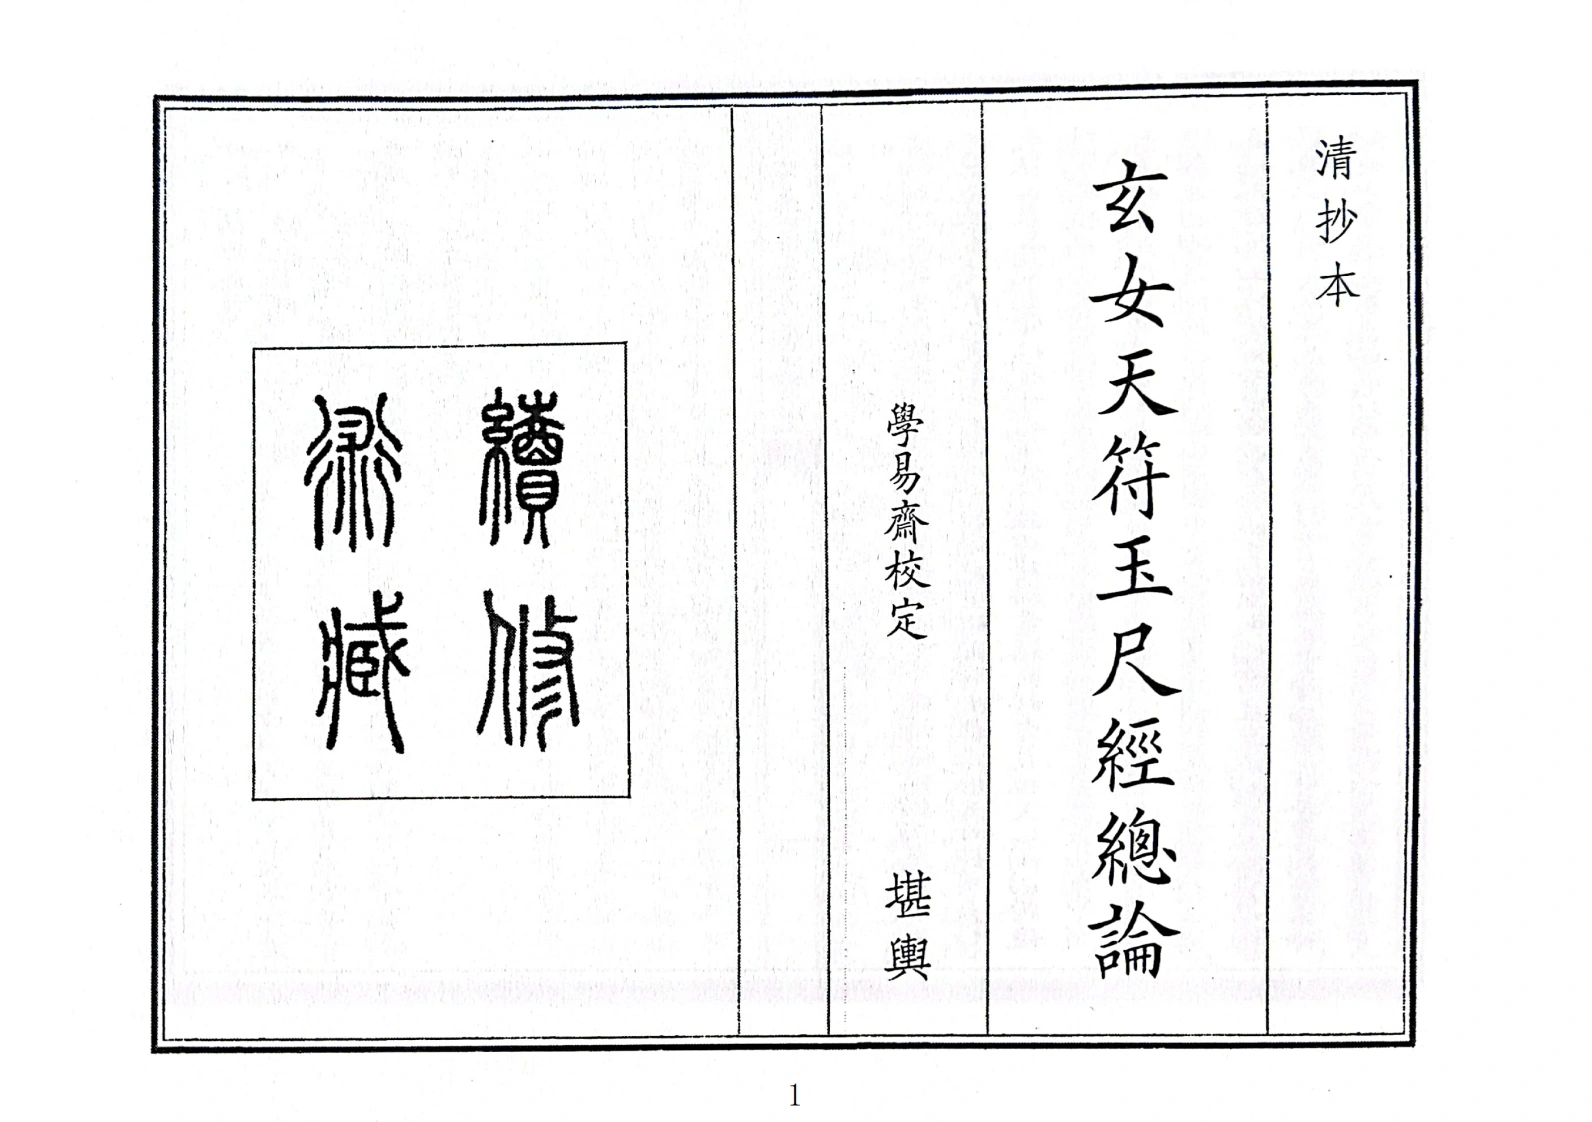 清抄本
玄女天符玉尺經總論
學易齋校定 堪輿
續修
術藏
1